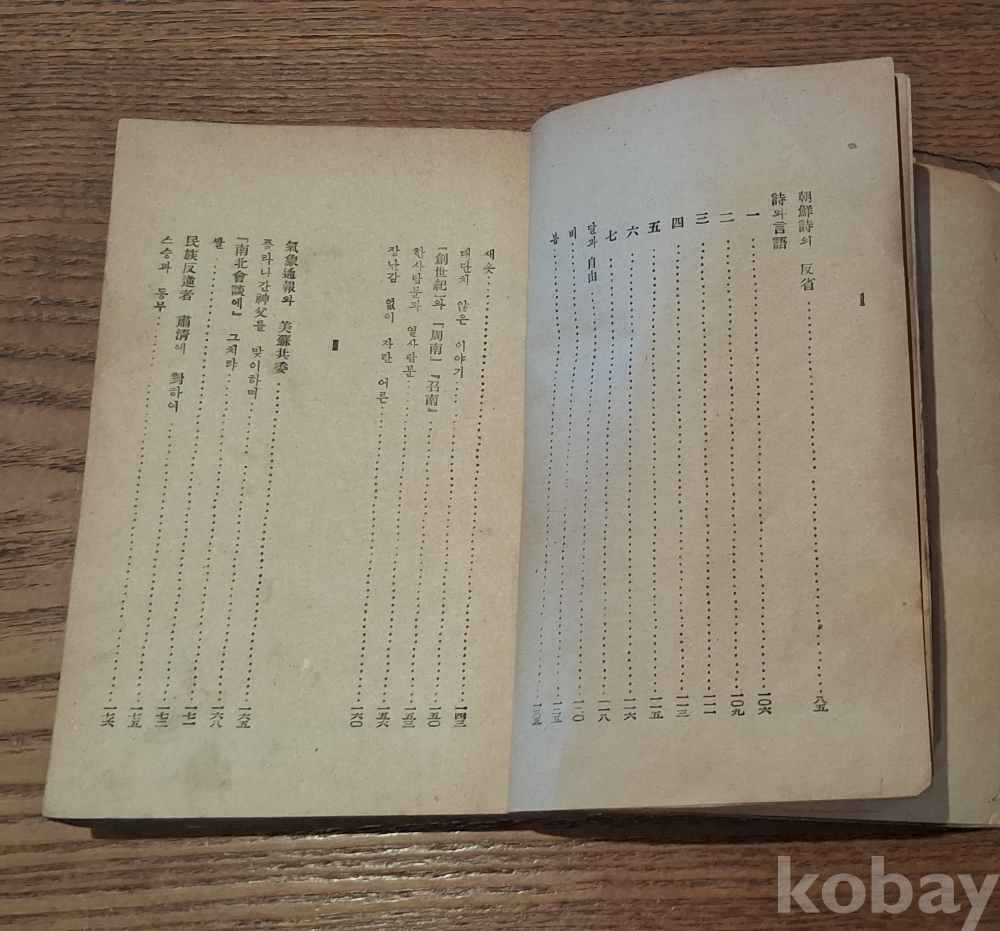 Ⅰ
朝鮮詩의 反省……八五
詩와 言語
一……一〇六
二……一〇九
三……一一一
四……一一三
五……一一五
六……一一六
七……一一八
달과 自由……一二〇
비……一二五
봄……一三五
새옷……一四三
대단치 않은 이야기……一五〇
『創世紀』와 『周南』『召南』……一五三
한사람분과 열사람분……一五六
장난감 없이 자란 어른……一六〇
氣象通報와 美蘇共委……一六五
플라나간神父를 맞이하며……一六八
『南北會談에』 그치랴……一七一
쌀……一七二
民族反逆者 肅清에 對하여……一七五
스승과 동무……一七六
kobay